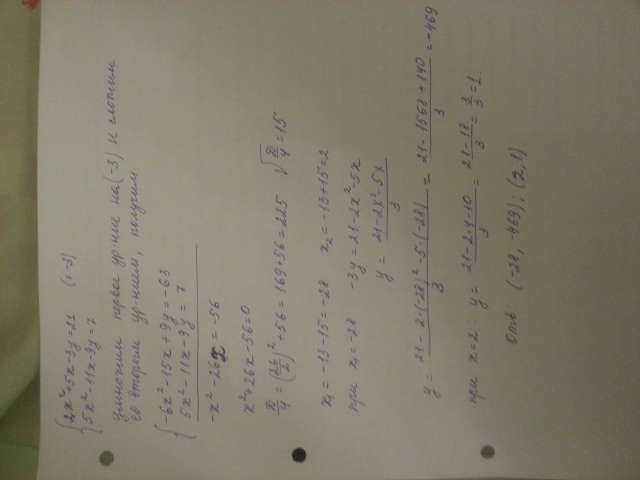 {2x²+5x-3y=21 (·-3)
{5x²-11x-9y=7
умножим первое ур-ние на (-3) и сложим
со вторым ур-нием, получим
{-6x²-15x+9y=-63
{5x²-11x-9y=7
-x²-26x=-56
x²+26x-56=0
D/4=(26/2)²+56=169+56=225 √D/4=15
x₁=-13-15=-28 x₂=-13+15=2
при x₁=-28 -3y=21-2x²-5x
y=(21-2x²-5x)/3
y=(21-2·(-28)²-5·(-28))/3=(21-1568+140)/3=-469
при x=2: y=(21-2·4-10)/3=(21-18)/3=3/3=1
Отв: (-28; -469); (2, 1)